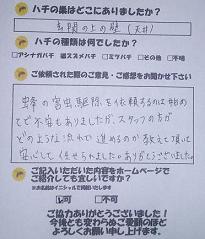 ハチの巣はどこにありましたか?
玄関の上の壁 (天井)
ハチの種類は何でしたか?
□アシナガバチ ☑スズメバチ □ミツバチ □その他 □不明
ご依頼された際のご意見・ご感想をお聞かせ下さい
蜂の害虫駆除を依頼するのは初め
てで不安もありましたが、スタッフの方が
どのような流れで進めるのか教えて頂いて
安心して任せられました。ありがとうございました。
ご記入いただいた内容をホームページで
ご紹介しても宜しいですか?
※お名前はイニシャルで掲載いたします
☑可 □不可
ご協力ありがとうございました!
今後とも変わらぬご愛顧のほど
よろしくお願い申し上げます。